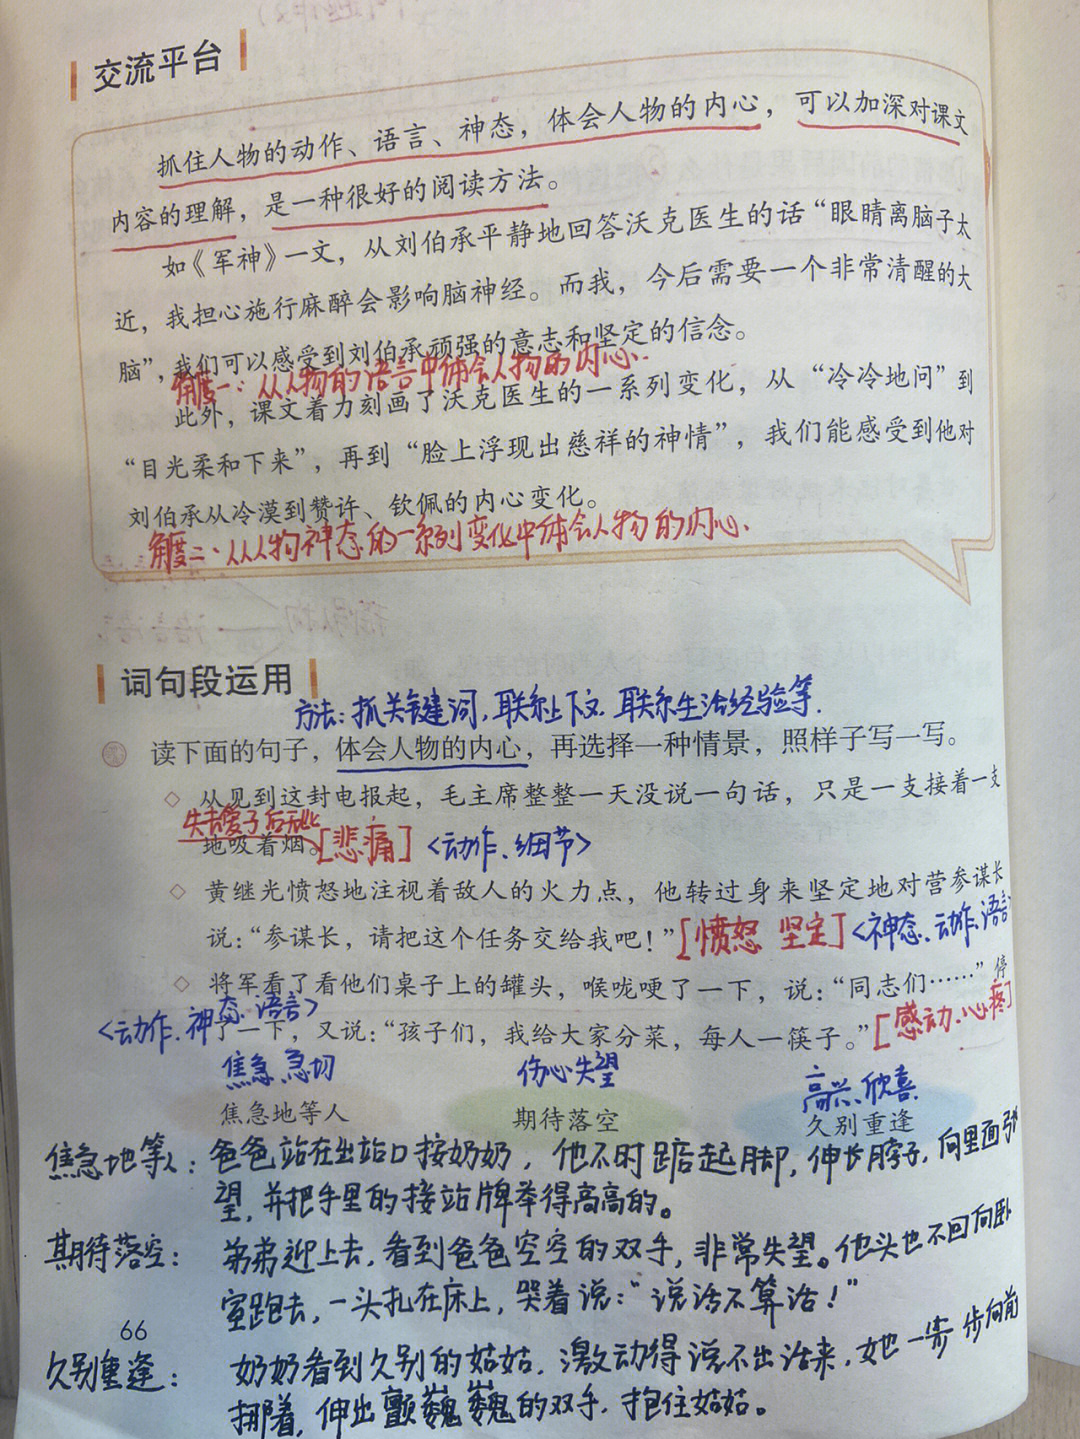 交流平台
抓住人物的动作、语言、神态，体会人物的内心，可以加深对课文
内容的理解，是一种很好的阅读方法。
如《军神》一文，从刘伯承平静地回答沃克医生的话“眼睛离脑子太
近，我担心施行麻醉会影响脑神经。而我，今后需要一个非常清醒的大
脑”，我们可以感受到刘伯承顽强的意志和坚定的信念。
角度一：从人物的语言中体会人物的内心.
此外，课文着力刻画了沃克医生的一系列变化，从“冷冷地问”到
“目光柔和下来”，再到“脸上浮现出慈祥的神情”，我们能感受到他对
刘伯承从冷漠到赞许、钦佩的内心变化。
角度二：从人物神态的一系列变化中体会人物的内心.
词句段运用
方法：抓关键词，联系上下文，联系生活经验等.
读下面的句子，体会人物的内心，再选择一种情景，照样子写一写。
◇ 从见到这封电报起，毛主席整整一天没说一句话，只是一支接着一支
失去爱子后无比
地吸着烟。[悲痛] <动作、细节>
◇ 黄继光愤怒地注视着敌人的火力点，他转过身来坚定地对营参谋长
说：“参谋长，请把这个任务交给我吧！”[愤怒 坚定] <神态、动作、语言>
◇ 将军看了看他们桌子上的罐头，喉咙哽了一下，说：“同志们……”停
<动作、神态、语言>
了一下，又说：“孩子们，我给大家分菜，每人一筷子。”[感动、心疼]
焦急 急切 伤心失望 高兴、欣喜
焦急地等人 期待落空 久别重逢
焦急地等人：爸爸站在出站口接奶奶，他不时踮起脚，伸长脖子，向里面张
望，并把手里的接站牌举得高高的。
期待落空：弟弟迎上去，看到爸爸空空的双手，非常失望。他头也不回向卧
室跑去，一头扎在床上，哭着说：“说话不算话！”
66
久别重逢：奶奶看到久别的姑姑，激动得说不出话来，她一步一步向前
挪着，伸出颤巍巍的双手，抱住姑姑。